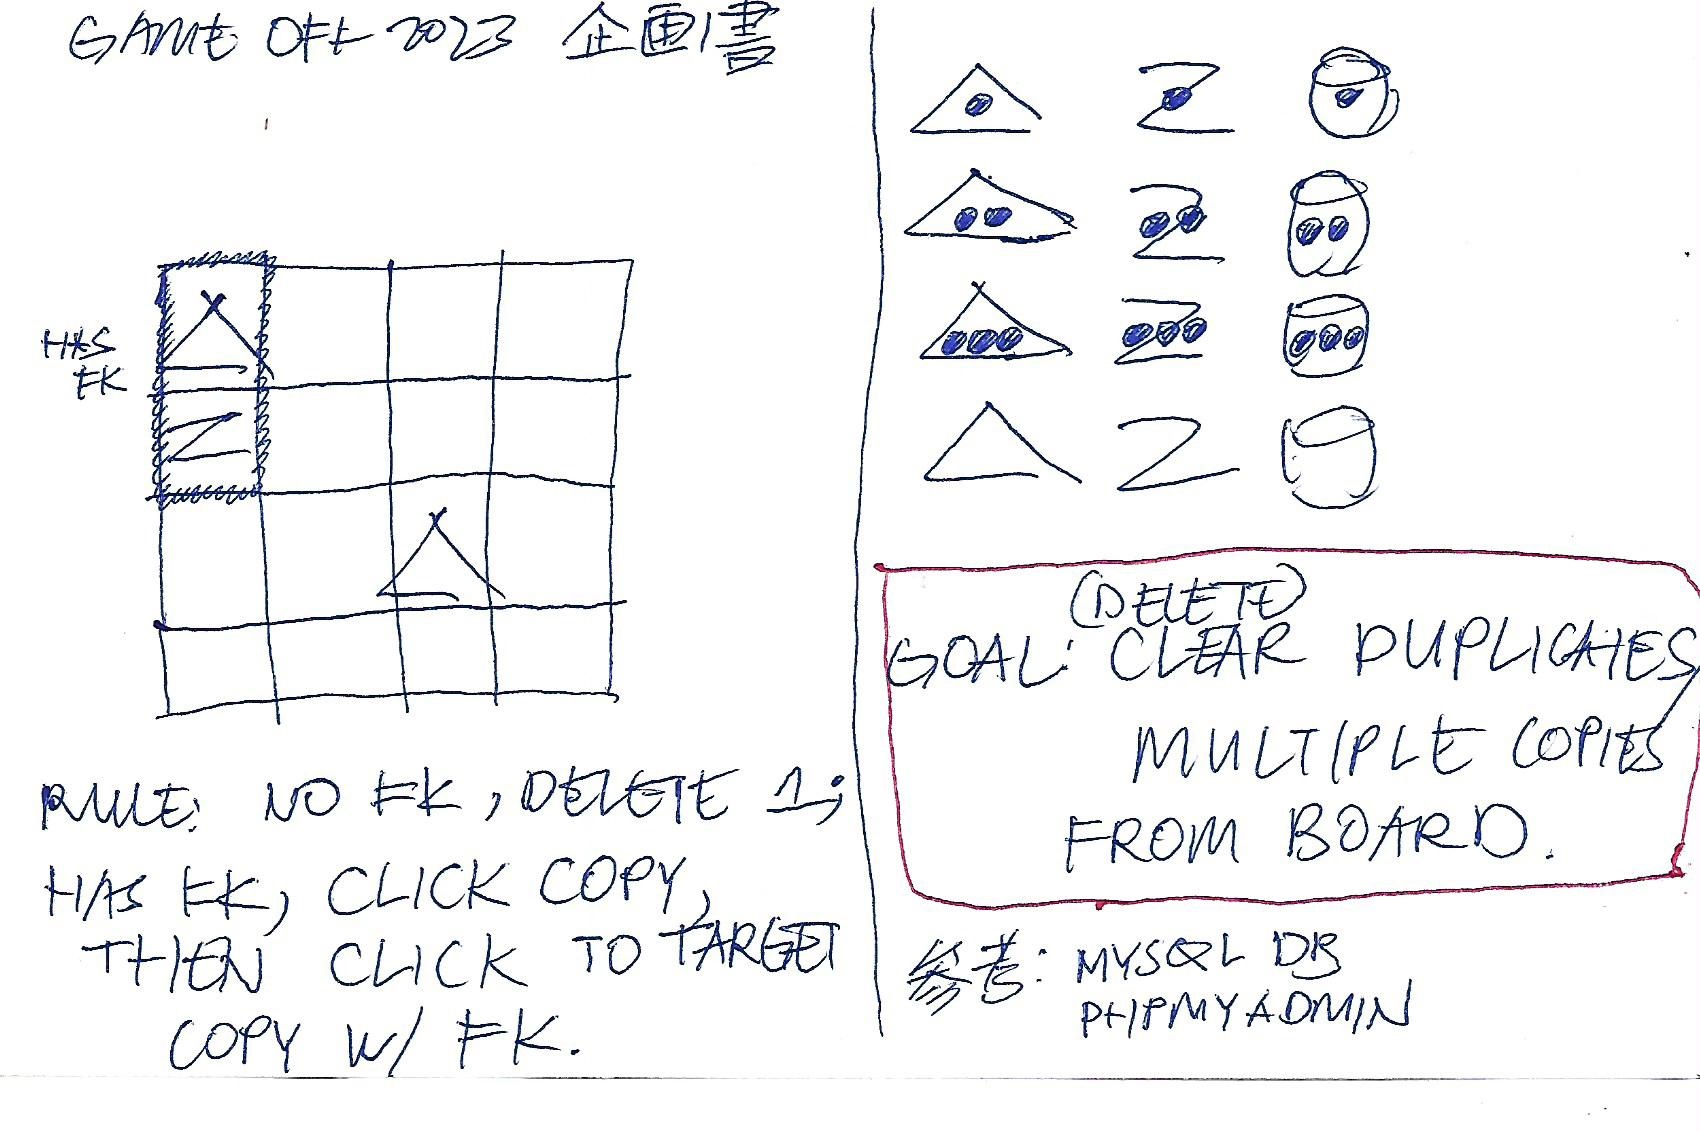 GAME OFF 2023 企画書
HAS
FK
Z
RULE: NO FK, DELETE 1;
HAS FK, CLICK COPY,
THEN CLICK TO TARGET
COPY W/ FK.
Z
Z
Z
Z
(DELETE)
GOAL: CLEAR DUPLICATES,
MULTIPLE COPIES
FROM BOARD.
参考: MYSQL DB
PHPMYADMIN